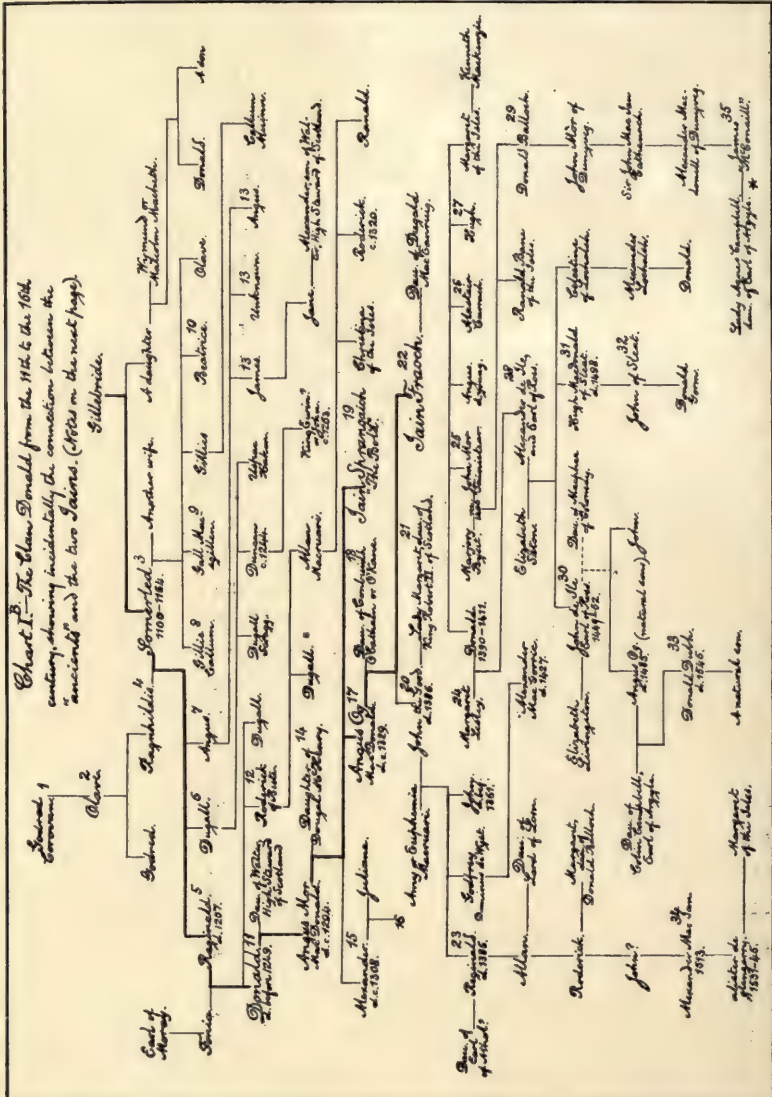 Chart I.B—The Clan Donald from the 11th to the 16th
century, showing incidentally the connection between the
"ancients" and the two Iains. (Notes on the next page).
Godred 1
Crovan
Gillebride.
2
Olave.
Godred.
Ragnhildis 4
Somerled 3
1100-1164.
Another wife.
A daughter
Wymund or
Malcolm Macbeth.
Earl of
Moray.
Fonia.
Reginald 5
d. 1207.
Dugall 6
Angus 7
Gillies 8
Callum
Gall Mac 9
Sgillem
Gillies
Beatrice. 10
Olave.
Donald.
A son
Donald. 11
d. before 1249.
Dau. of Walter,
High Steward
of Scotland
12
Roderick
of Bute.
Dugall.
Dugall
Scragg.
Duncan
c. 1244.
Uspac
Hakon.
James 13
Unknown 13
Angus. 13
Callum
Angus Mor
MacDonald
d.c. 1294.
Daughter of 14
Dugall.
Allan
Macruari.
King Ewin?
or John
c. 1263.
Jane.
Alexander, son of Wal-
ter, High Steward of Scotland.
15
Alexander
d.c. 1308.
Juliana.
16
Angus Og 17
MacDonald
d.c. 1329.
Dau. of 18
O'Cathalan or O'Kane.
Iain Sprangaich 19
"The Bold".
Christina
of the Isles.
Roderick
c. 1320.
Ranald.
Amy or Euphemia
Macruari.
20
John the Good
d. 1386.
Lady Margaret, dau. of 21
King Robert II of Scotland.
Iain Fraoch. 22
Dau. of Dugald
Dau. of
Earl of
Athol?
23
Reginald
d. 1386.
Godfrey
Dominus de Wyst.
24
Margaret
Lesley.
Donald
1390-1411.
Marjory
Bisset.
25
John Mor
Angus
26
Alastair
Carrach.
27
Hugh.
Margaret
of the Isles.
Kenneth
Mackenzie.
Allan.
Dau. of
Lord of Lorn.
Alexander
Mac Gorrie.
d. 1427.
Elizabeth
Seton
28
Alexander de Ile,
and Earl of Ross.
Ranald Bane
of the Isles.
29
Donald Balloch.
Roderick.
Margaret,
dau. of
Donald Balloch
Elizabeth
Livingston.
30
John de Ile
Earl of Ross.
1449-1502.
Dau. of Macphee
of Colonsay.
31
Hugh MacDonald
of Sleat.
d. 1498.
Celestine
of Lochalsh.
John Mor of
Dunyveg.
John?
Dau. of
Colin Campbell,
Earl of Argyle.
Angus Og (natural son)
d. 1485.
John.
32
John of Sleat.
Alexander
Lochalsh.
Sir John
Cathanach.
34
Alexander Mac Ian
1513.
33
Donald Dubh.
d. 1545.
Donald
Gorm.
Donald.
Alexander Mac-
donell of Dunyveg.
Alister de
Glengarry.
1531-45.
Margaret
of the Isles.
A natural son.
Lady Agnes Campbell
dau. of Earl of Argyle. *
35
James
McConaill."